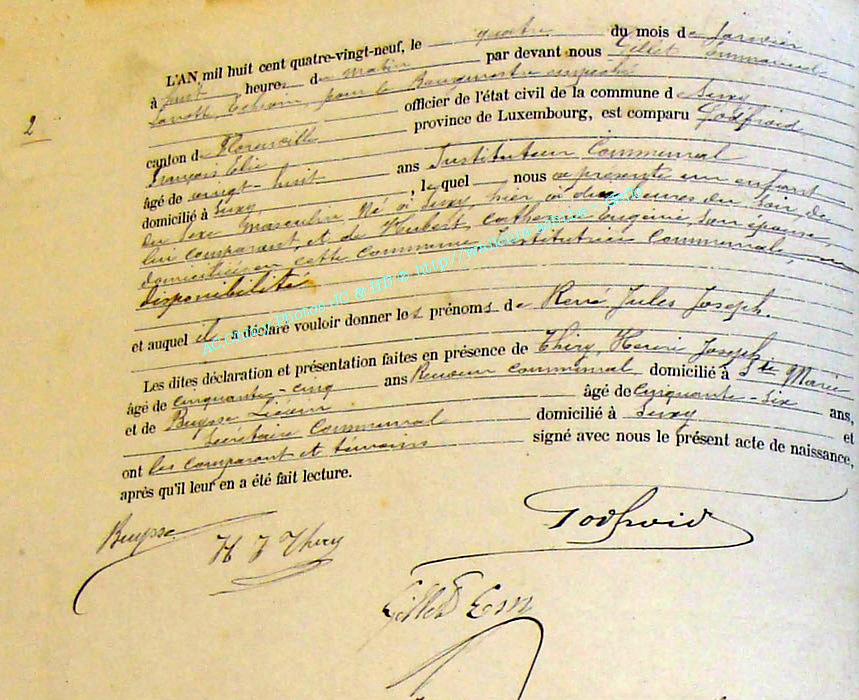 L'AN mil huit cent quatre-vingt-neuf, le quatre du mois de Janvier
à huit heures du matin par devant nous Gillet Emmanuel
pour le Bourgmestre empêché
officier de l'état civil de la commune de Suxy
canton de Florenville province de Luxembourg, est comparu Godfroid
François Elie
âgé de vingt-huit ans Instituteur Communal
domicilié à Suxy, lequel nous a présenté un enfant
du sexe masculin né à Suxy, hier à deux heures du soir de
lui comparant et de Hubert, Catherine Eugénie, son épouse,
domiciliée en cette Commune, Institutrice Communale, en
disponibilité
et auquel il a déclaré vouloir donner les prénoms de René Jules Joseph.
Les dites déclaration et présentation faites en présence de Thiry, Henri Joseph
âgé de cinquante-cinq ans Receveur Communal domicilié à Ste Marie
et de Buysse âgé de cinquante-six ans,
Secrétaire Communal domicilié à Suxy et
ont les comparant et témoins signé avec nous le présent acte de naissance,
après qu'il leur en a été fait lecture.
2
Buysse
H J Thiry
Godfroid
Gillet Em